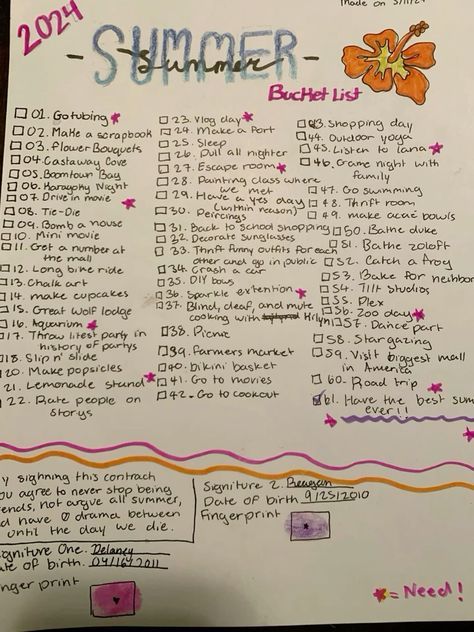 made on 5/11/24
2024
SUMMER
- Summer -
Bucket List
01. Go tubing
02. Make a scrapbook
03. Flower Bouquets
04. Castaway Cove
05. Boomtown Bay
06. Karaoke Night
07. Drive in movie
08. Tie-Die
09. Bomb a house
10. Mini movie
11. Get a number at
the mall
12. Long bike ride
13. Chalk art
14. make cupcakes
15. Great Wolf lodge
16. Aquarium
17. Throw litest party in
history of partys
18. Slip n' slide
20. Make popsicles
21. Lemonade stand
22. Rate people on
storys
23. Vlog day
24. Make a Port
25. Sleep
26. Pull all nighter
27. Escape room
28. Painting class where
we met
29. Have a yes day
(within reason)
30. Peircings
31. Back to school shopping
32. Decorate sunglasses
33. Thrift funny outfits for each
other and go in public
34. Crash a car
35. DIY bows
36. Sparkle extention
37. Blind, deaf, and mute
cooking with Hilyn
38. Picnic
39. Farmers market
40. bikini basket
41. Go to movies
42. Go to cookout
43. Shopping day
44. Outdoor yoga
45. Listen to lana
46. Game night with
family
47. Go swimming
48. Thrift room
49. make acai bowls
50. Bathe duke
51. Bathe zoloft
52. Catch a frog
53. Bake for neighbor
54. Tilt studios
55. Plex
56. Zoo day
57. Dance part
58. Stargazing
59. Visit biggest mall
in America
60. Road trip
61. Have the best sum
ever!!
y sighnning this contrach
ou agree to never stop being
ends, not argue all summer,
d have 0 drama between
until the day we die.
igniture One. Delaney
ate of birth. 04/16/2011
nger print
Signiture 2. Reagan
Date of birth 9/25/2010
Fingerprint
= Need!